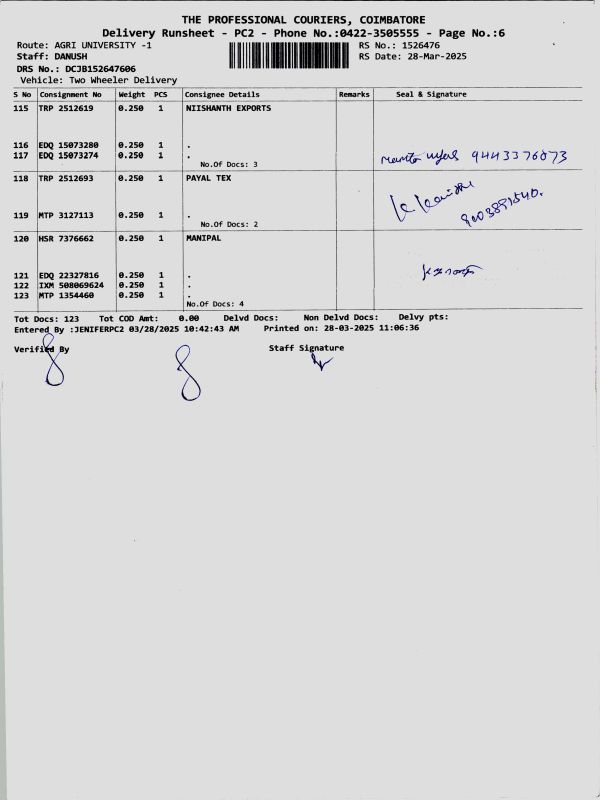 THE PROFESSIONAL COURIERS, COIMBATORE
Delivery Runsheet - PC2 - Phone No.:0422-3505555 - Page No.:6
Route: AGRI UNIVERSITY -1 RS No.: 1526476
Staff: DANUSH RS Date: 28-Mar-2025
DRS No.: DCJB152647606
Vehicle: Two Wheeler Delivery
S No Consignment No Weight PCS Consignee Details Remarks Seal & Signature
115 TRP 2512619 0.250 1 NIISHANTH EXPORTS
116 EDQ 15073280 0.250 1 .
117 EDQ 15073274 0.250 1 . 9443376073
No.Of Docs: 3
118 TRP 2512693 0.250 1 PAYAL TEX
119 MTP 3127113 0.250 1 .
No.Of Docs: 2
120 HSR 7376662 0.250 1 MANIPAL
121 EDQ 22327816 0.250 1 .
122 IXM 508069624 0.250 1 .
123 MTP 1354460 0.250 1 .
No.Of Docs: 4
Tot Docs: 123 Tot COD Amt: 0.00 Delvd Docs: Non Delvd Docs: Delvy pts:
Entered By :JENIFERPC2 03/28/2025 10:42:43 AM Printed on: 28-03-2025 11:06:36
Verified By Staff Signature